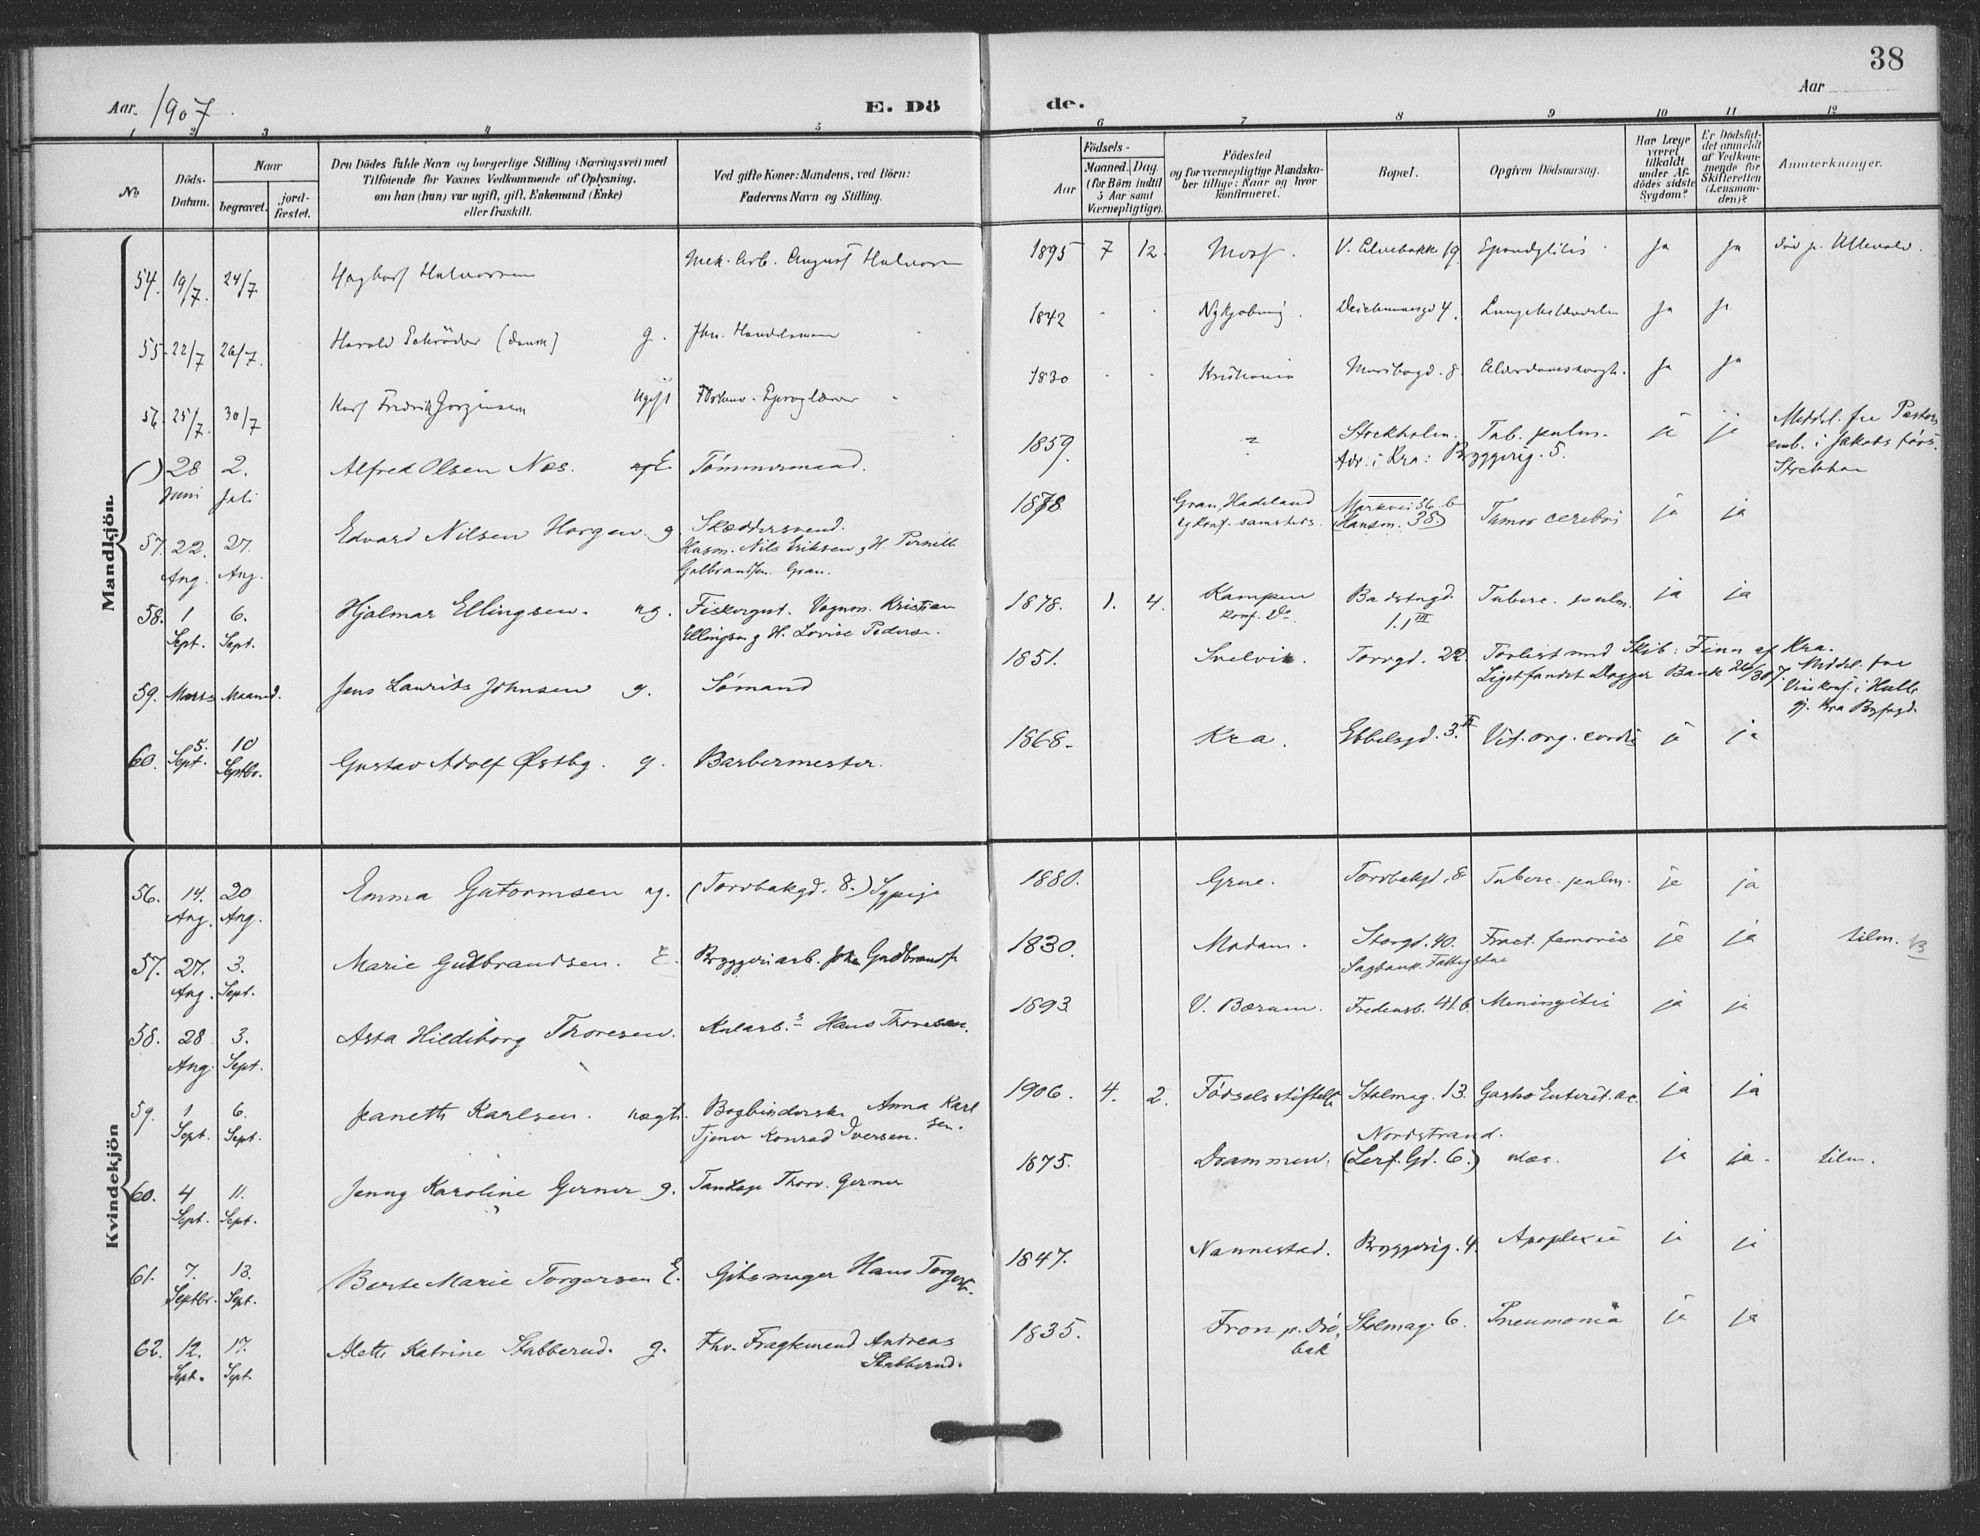 38
Aar. 1907
E. Dö de.
Aar
1 2 3 4 5 6 7 8 9 10 11 12
No
Döds-Datum.
Naar
begravet.
jord-fæstet.
Den Dödes fulde Navn og borgerlige Stilling (Næringsvei) med
Tilföiende for Voxnes Vedkommende af Oplysning,
om han (hun) var ugift, gift, Enkemand (Enke)
eller fraskilt.
Ved gifte Koner: Mandens, ved Börn:
Faderens Navn og Stilling.
Födsels-
Aar
Maaned. Dag.
(for Börn indtil
5 Aar samt
Værnepligtige).
Födested
og for værnepligtige Mandska-
ber tillige: Naar og hvor
konfirmeret.
Bopæl.
Opgiven Dödsaarsag.
Har Læge
været
tilkaldt
under Af-
dödes sidste
Sygdom?
Er Dödsfal-
det anmeldt
af Vedkom-
mende for
Skifteretten
(Lensman-
den)?
Anmærkninger.
Mandkjön.
54. 19/7. 24/7 Halvorsen Mek. Arb. August Halvorsen 1895 7 12. Moss. 19. Spondylitis ja ja Död p. Ullevold.
55. 22/7 26/7. Harald Schröder (dansk) g. Fhv. Handelsmand 1842 Nykjobing. Deichmansgd 4. ja ja
56. 25/7. 30/7 Karl Fredrik Jorginsen ugift 1830 Kristiania Maribogd. 8 ja ja
() 28 Juni 2. Juli Alfred Olsen Næs. Tömmermand. 1859. Stockholm. Adr. i Kra: Bryggerig. 5. Tub. pulm. ja ja Meddel. fra Pastors
emb. i Jakobs förs.
Stockholm
57. 22. Aug. 27. Aug. Edvard Nilsen Horgen g. Skæddersvend.
Husm. Nils Eriksen g H. Pernille
Gulbrandsen. Gran. 1878 Gran, Hadeland
og konf. samsteds. Markvei 36 b
(Hansm. 38) Tumor cerebri ja ja
58. 1 Sept. 6. Sept. Hjalmar Ellingsen. ug. Fiskergut. Vognm. Kristian
Ellingsen g H. Lovise Peders. 1878. 1. 4. Kampen
konf. Do. Badstugd.
1. III Tuberc. pulm. ja ja
59. Marts Maaned. Jens Laurits Johnsen g. Sömand 1851. Svelvik. Torvgd. 22. Forlist med Skib: Finn af Kra.
Liget fundet Dogger Bank 26/30 7. Meddel. fra
Vicekons. i Hull
gj. Kra Byfogd.
60. 5. Sept. 10 Septbr. Gustav Adolf Østbg. g. Barbermester. 1868. Kra. Ebbelsgd. 3. II Vit. org. cordis ja ja
Kvindekjön
56. 14. Aug. 20 Aug. Emma Gutormsen ug. (Torvbakgd. 8.) Sypige 1880. Grue. Torvbakgd. 8 Tuberc. pulm. ja ja
57. 27. Aug. 3. Sept. Marie Gulbrandsen. E. Bryggeriarb. Gudbrands. 1830. Modum. Storgd. 40.
Sagbank. Fract. femoris ja ja tilm.
58. 28 Aug. 3. Sept. Asta Hildeborg Thoresen. Kularb.s Hans Thoresen. 1893. V. Bærum. Fredensb. 41.b Meningitis ja ja
59. 1 Sept. 6. Sept. Jeanette Karlsen. uægt. Bogbinderske Anna Karl
sen.
Tjener Konrad Iversen. 1906. 4. 2. Födselsstiftels. Stolmag. 13. Gastro Enterit. ac. ja ja
60. 4 Sept. 11. Sept. Jenny Karoline Gerner g. Thorv. Gerner 1875. Drammen. Nordstrand.
(Lerf. Gd. 6.) ulcer. ja ja. tilm.
61. 7. Septbr. 13. Sept. Berte Marie Torgersen E. Gibsmager Hans Torgers. 1847. Nannestad. Bryggerig. 4. Apoplexie ja ja
62. 12. Sept. 17. Sept. Alette Katrine Stabberud. g. Fhv. Fragtmand Andreas
Stabberud. 1835. Fron p. Drö-
bak Stolmag. 6. Pneumonia ja ja